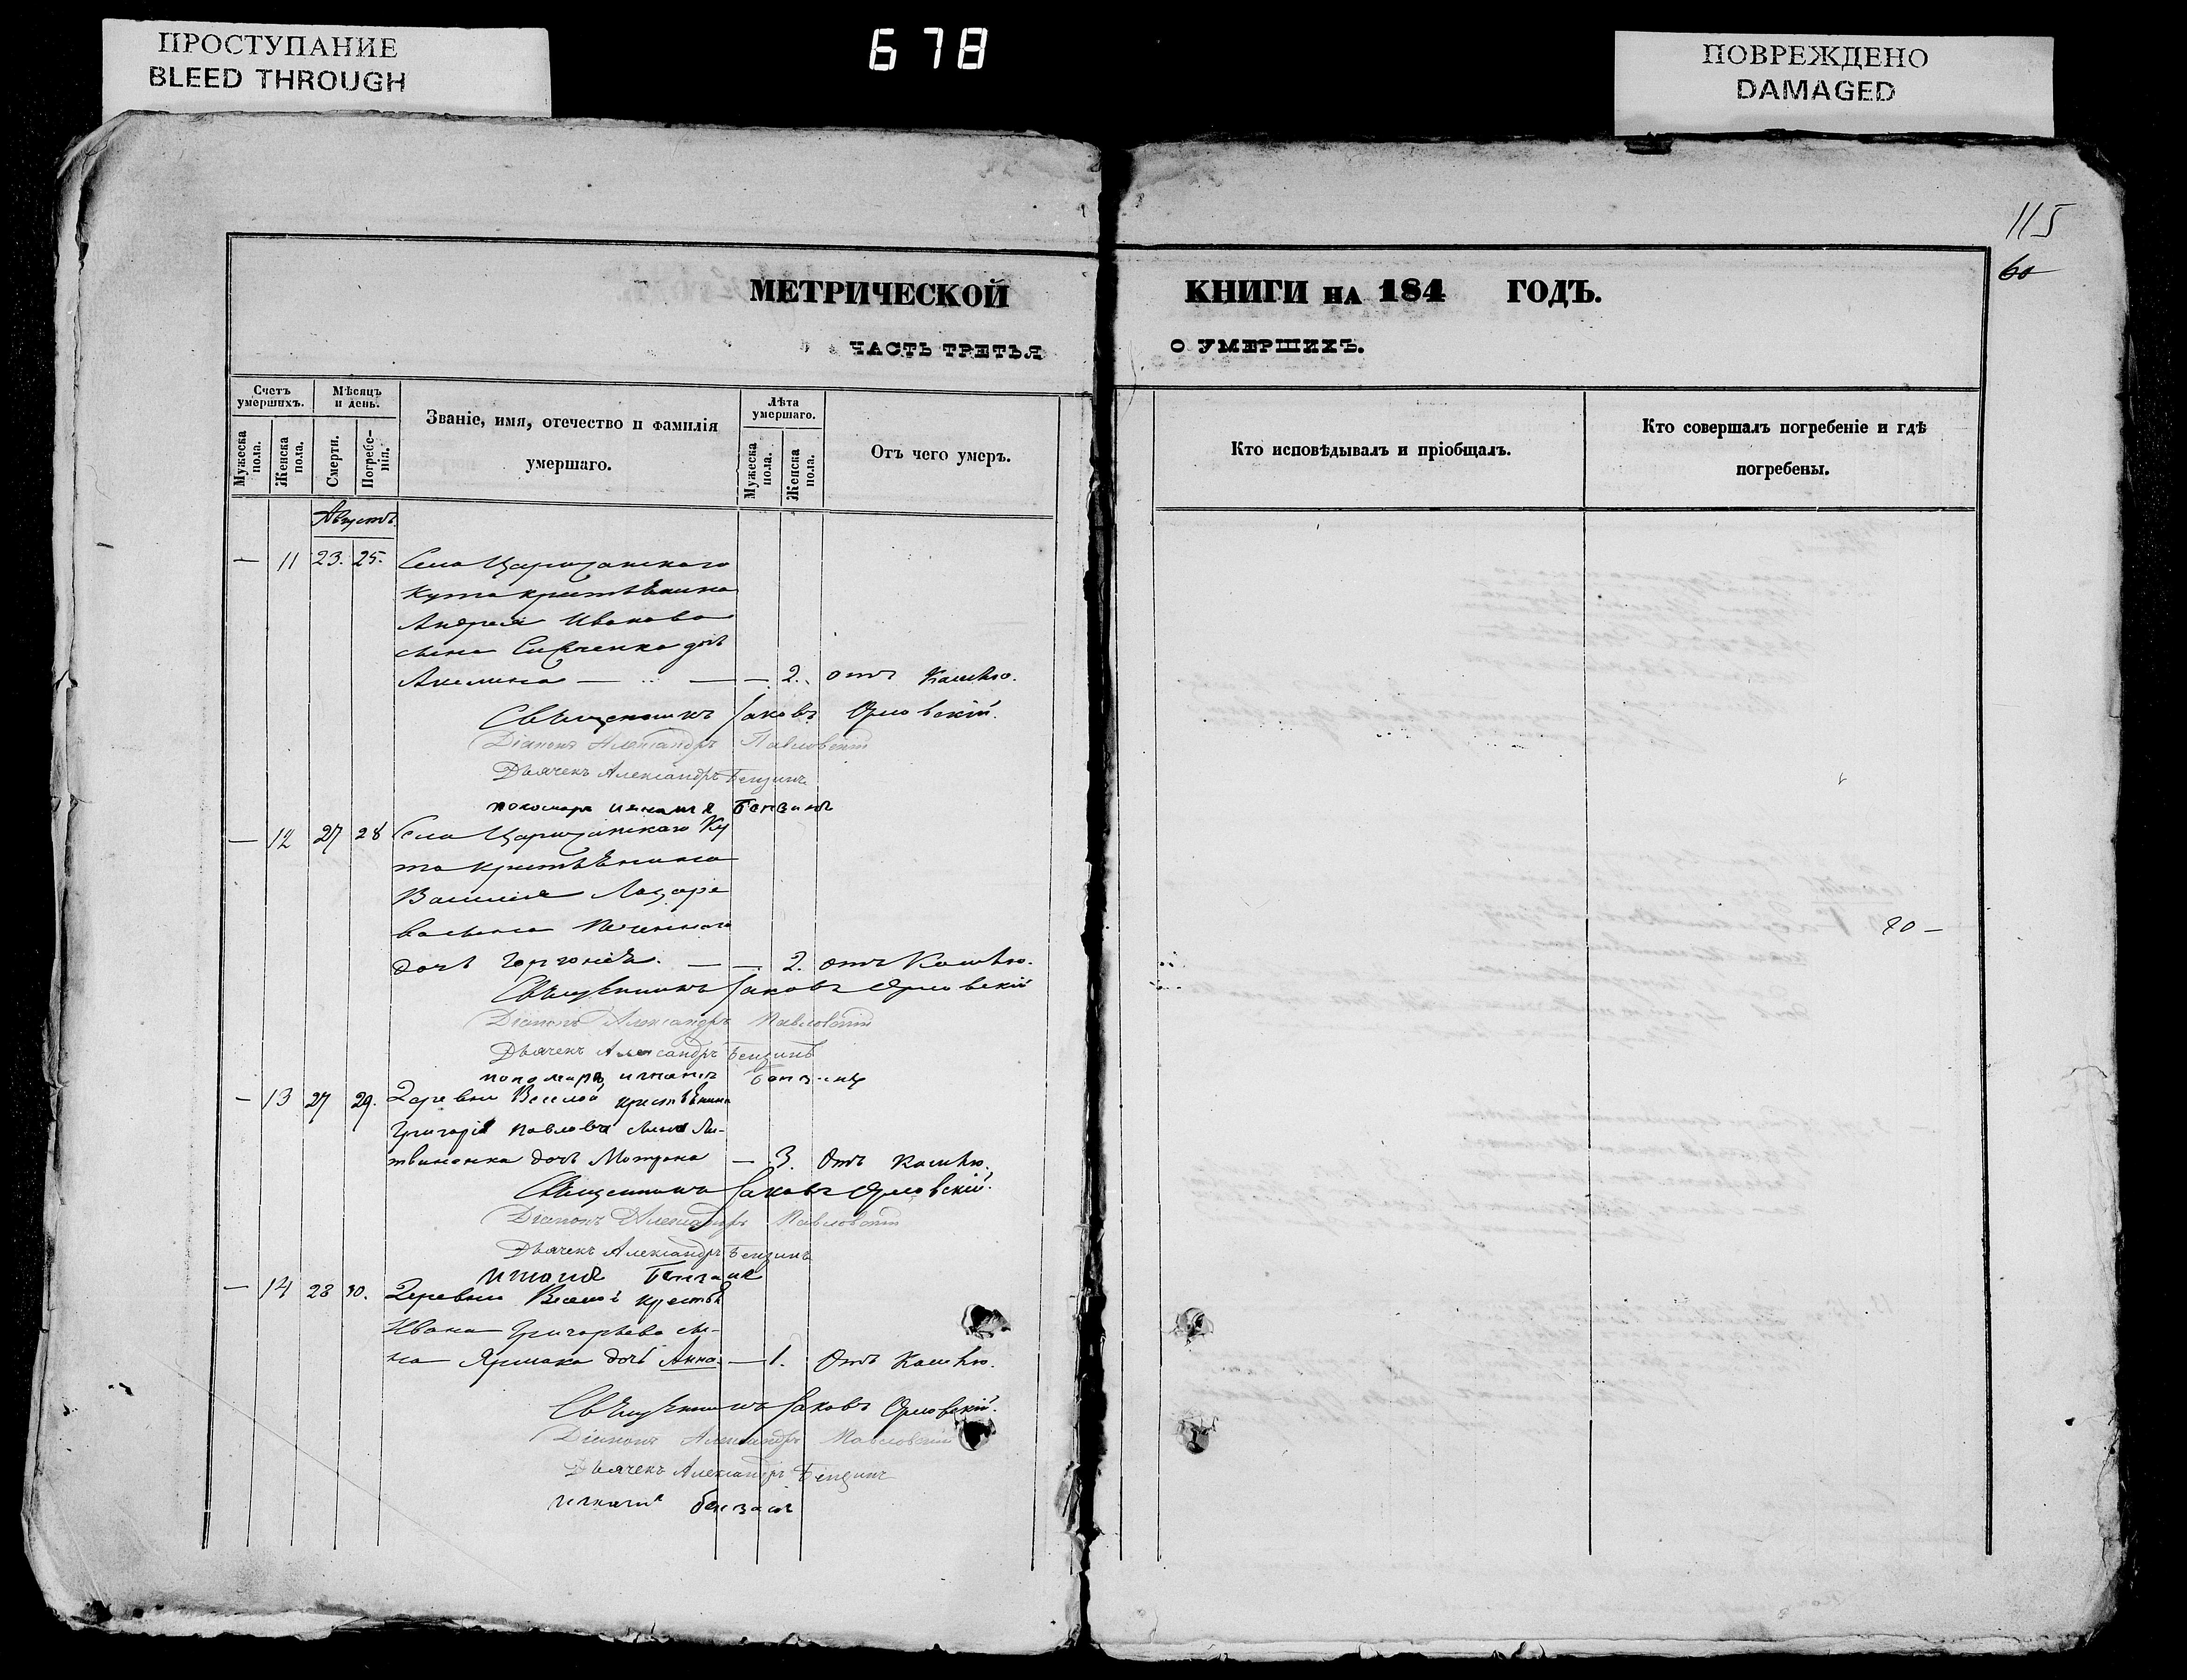 ПРОСТУПАНИЕ
BLEED THROUGH
678
ПОВРЕЖДЕНО
DAMAGED
115
60
МЕТРИЧЕСКОЙ КНИГИ НА 184 ГОДЪ.
ЧАСТЬ ТРЕТЬЯ О УМЕРШИХЪ.
Счетъ умершихъ.
Мужеска пола.
Женска пола.
Мѣсяцъ и день.
Смерти.
Погребенія.
Званіе, имя, отечество и фамилія умершаго.
Лѣта умершаго.
Мужеска пола.
Женска пола.
Отъ чего умеръ.
Кто исповѣдывалъ и пріобщалъ.
Кто совершалъ погребеніе и гдѣ погребены.
Августъ.
— 11 23. 25. Села Царичанскаго
Кута крестьянина
Андрея Иванова
сына дочь
Акилина — — — 2. отъ Кашлю.
Священникъ Іаковъ Орловскій.
Діаконъ Александръ Павловскій
Дьячекъ Александръ Бензинъ
пономарь Игнатій Бензинъ
— 12 27 28 Села Царичанскаго Ку
та крестьянина
Василія Лазаре
ва сына
дочь Горгонія. — — 2. отъ Кашлю.
Священникъ Іаковъ Орловскій
Діаконъ Александръ Павловскій
Дьячекъ Александръ Бензинъ
пономарь Игнатій Бензинъ
— 13 27 29. Деревни Веселой крестьянина
Григорія Павлова сына Ли-
твиненка дочь Мотрона — 3. Отъ Кашлю.
Священникъ Іаковъ Орловскій.
Діаконъ Александръ Павловскій
Дьячекъ Александръ Бензинъ
Игнатій Бензинъ
— 14 28 30. Деревни Веселой крестья
Ивана Григорьева сы-
на Ярмака дочь Анна — 1. Отъ Кашлю.
Священникъ Іаковъ Орловскій.
Діаконъ Александръ Павловскій
Дьячекъ Александръ Бензинъ
Игнатій Бензинъ